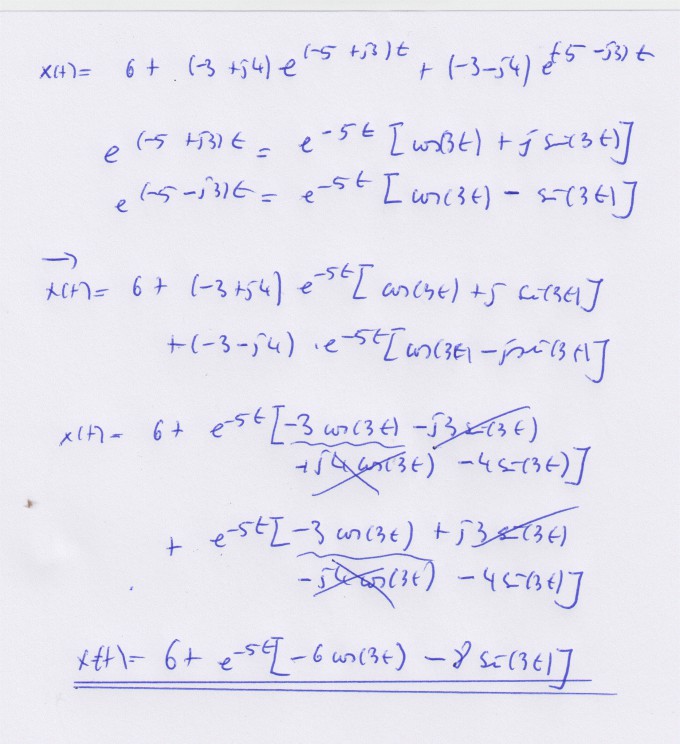 x(t) = 6 + (-3 + j4) e^(-5 + j3)t + (-3 - j4) e^(-5 - j3)t
e^(-5 + j3)t = e^-5t [cos(3t) + j sin(3t)]
e^(-5 - j3)t = e^-5t [cos(3t) - sin(3t)]
→
x(t) = 6 + (-3 + j4) e^-5t [cos(3t) + j sin(3t)]
+ (-3 - j4) · e^-5t [cos(3t) - j sin(3t)]
x(t) = 6 + e^-5t [-3 cos(3t) - j3 sin(3t)
+ j4 cos(3t) - 4 sin(3t)]
+ e^-5t [-3 cos(3t) + j3 sin(3t)
- j4 cos(3t) - 4 sin(3t)]
x(t) = 6 + e^-5t [-6 cos(3t) - 8 sin(3t)]